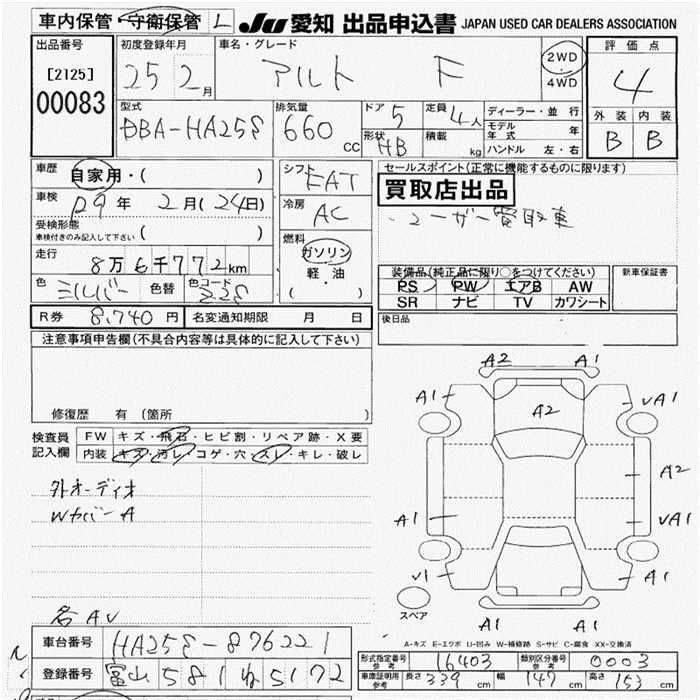 車内保管・守衛保管 L
JU 愛知 出品申込書 JAPAN USED CAR DEALERS ASSOCIATION
出品番号
[2125]
00083
初度登録年月
25 2月
車名・グレード
アルト F
2WD
・
4WD
評価点
4
外装 内装
B B
型式
DBA-HA25S
排気量
660 cc
ドア 5
形状 HB
定員 4人
積載 kg
ディーラー・並行
モデル年式 年
ハンドル 左・右
車歴
自家用・( )
車検
29年 2月(24日)
受検形態
車検付きのみ記入して下さい ( )
走行
8万6千772km
色 シルバー 色替 色コード Z2S
シフト FAT
冷房 AC
燃料
ガソリン
軽・油
( )
R券 8,740円 名変通知期限 月 日
セールスポイント(正常に機能するものに限ります)
買取店出品
・ユーザー買取車
装備品(純正品に限り○をつけてください)
PS PW エアB AW
SR ナビ TV カワシート
新車保証書
後日品
注意事項申告欄(不具合内容等は具体的に記入して下さい)
修復歴 有 (箇所 )
検査員記入欄
FW キズ・飛石・ヒビ割・リペア跡・X要
内装 キズ・汚レ・コゲ・穴・スレ・キレ・破レ
外オーディオ
WカバーA
各AU
A2 A1
A1 UA1
A2
A2
A1 UA1
U1 A1
スペア
A1 A1
A-キズ E-エクボ U-凹み W-補修跡 S-サビ C-腐食 XX-交換済
車台番号 HA25S-876221
登録番号 富山 581 ね 5172
形式指定番号 参考 16403 類別区分番号 参考 0003
車庫証明用 参考 長さ 339 cm 幅 147 cm 高さ 153 cm